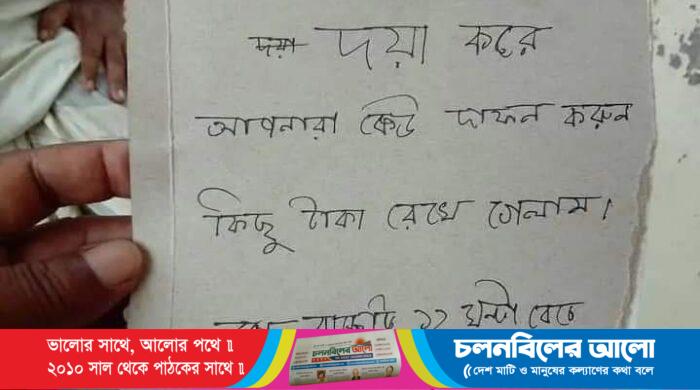 দয়া দয়া করে
আপনারা কেউ দাফন করুন
কিছু টাকা রেখে গেলাম।
১১ ঘন্টা বেচে
ভালোর সাথে, আলোর পথে ॥
২০১০ সাল থেকে পাঠকের সাথে ॥
চলনবিলের আলো
চলনবিলের আলো
দেশ মাটি ও মানুষের কল্যাণের কথা বলে